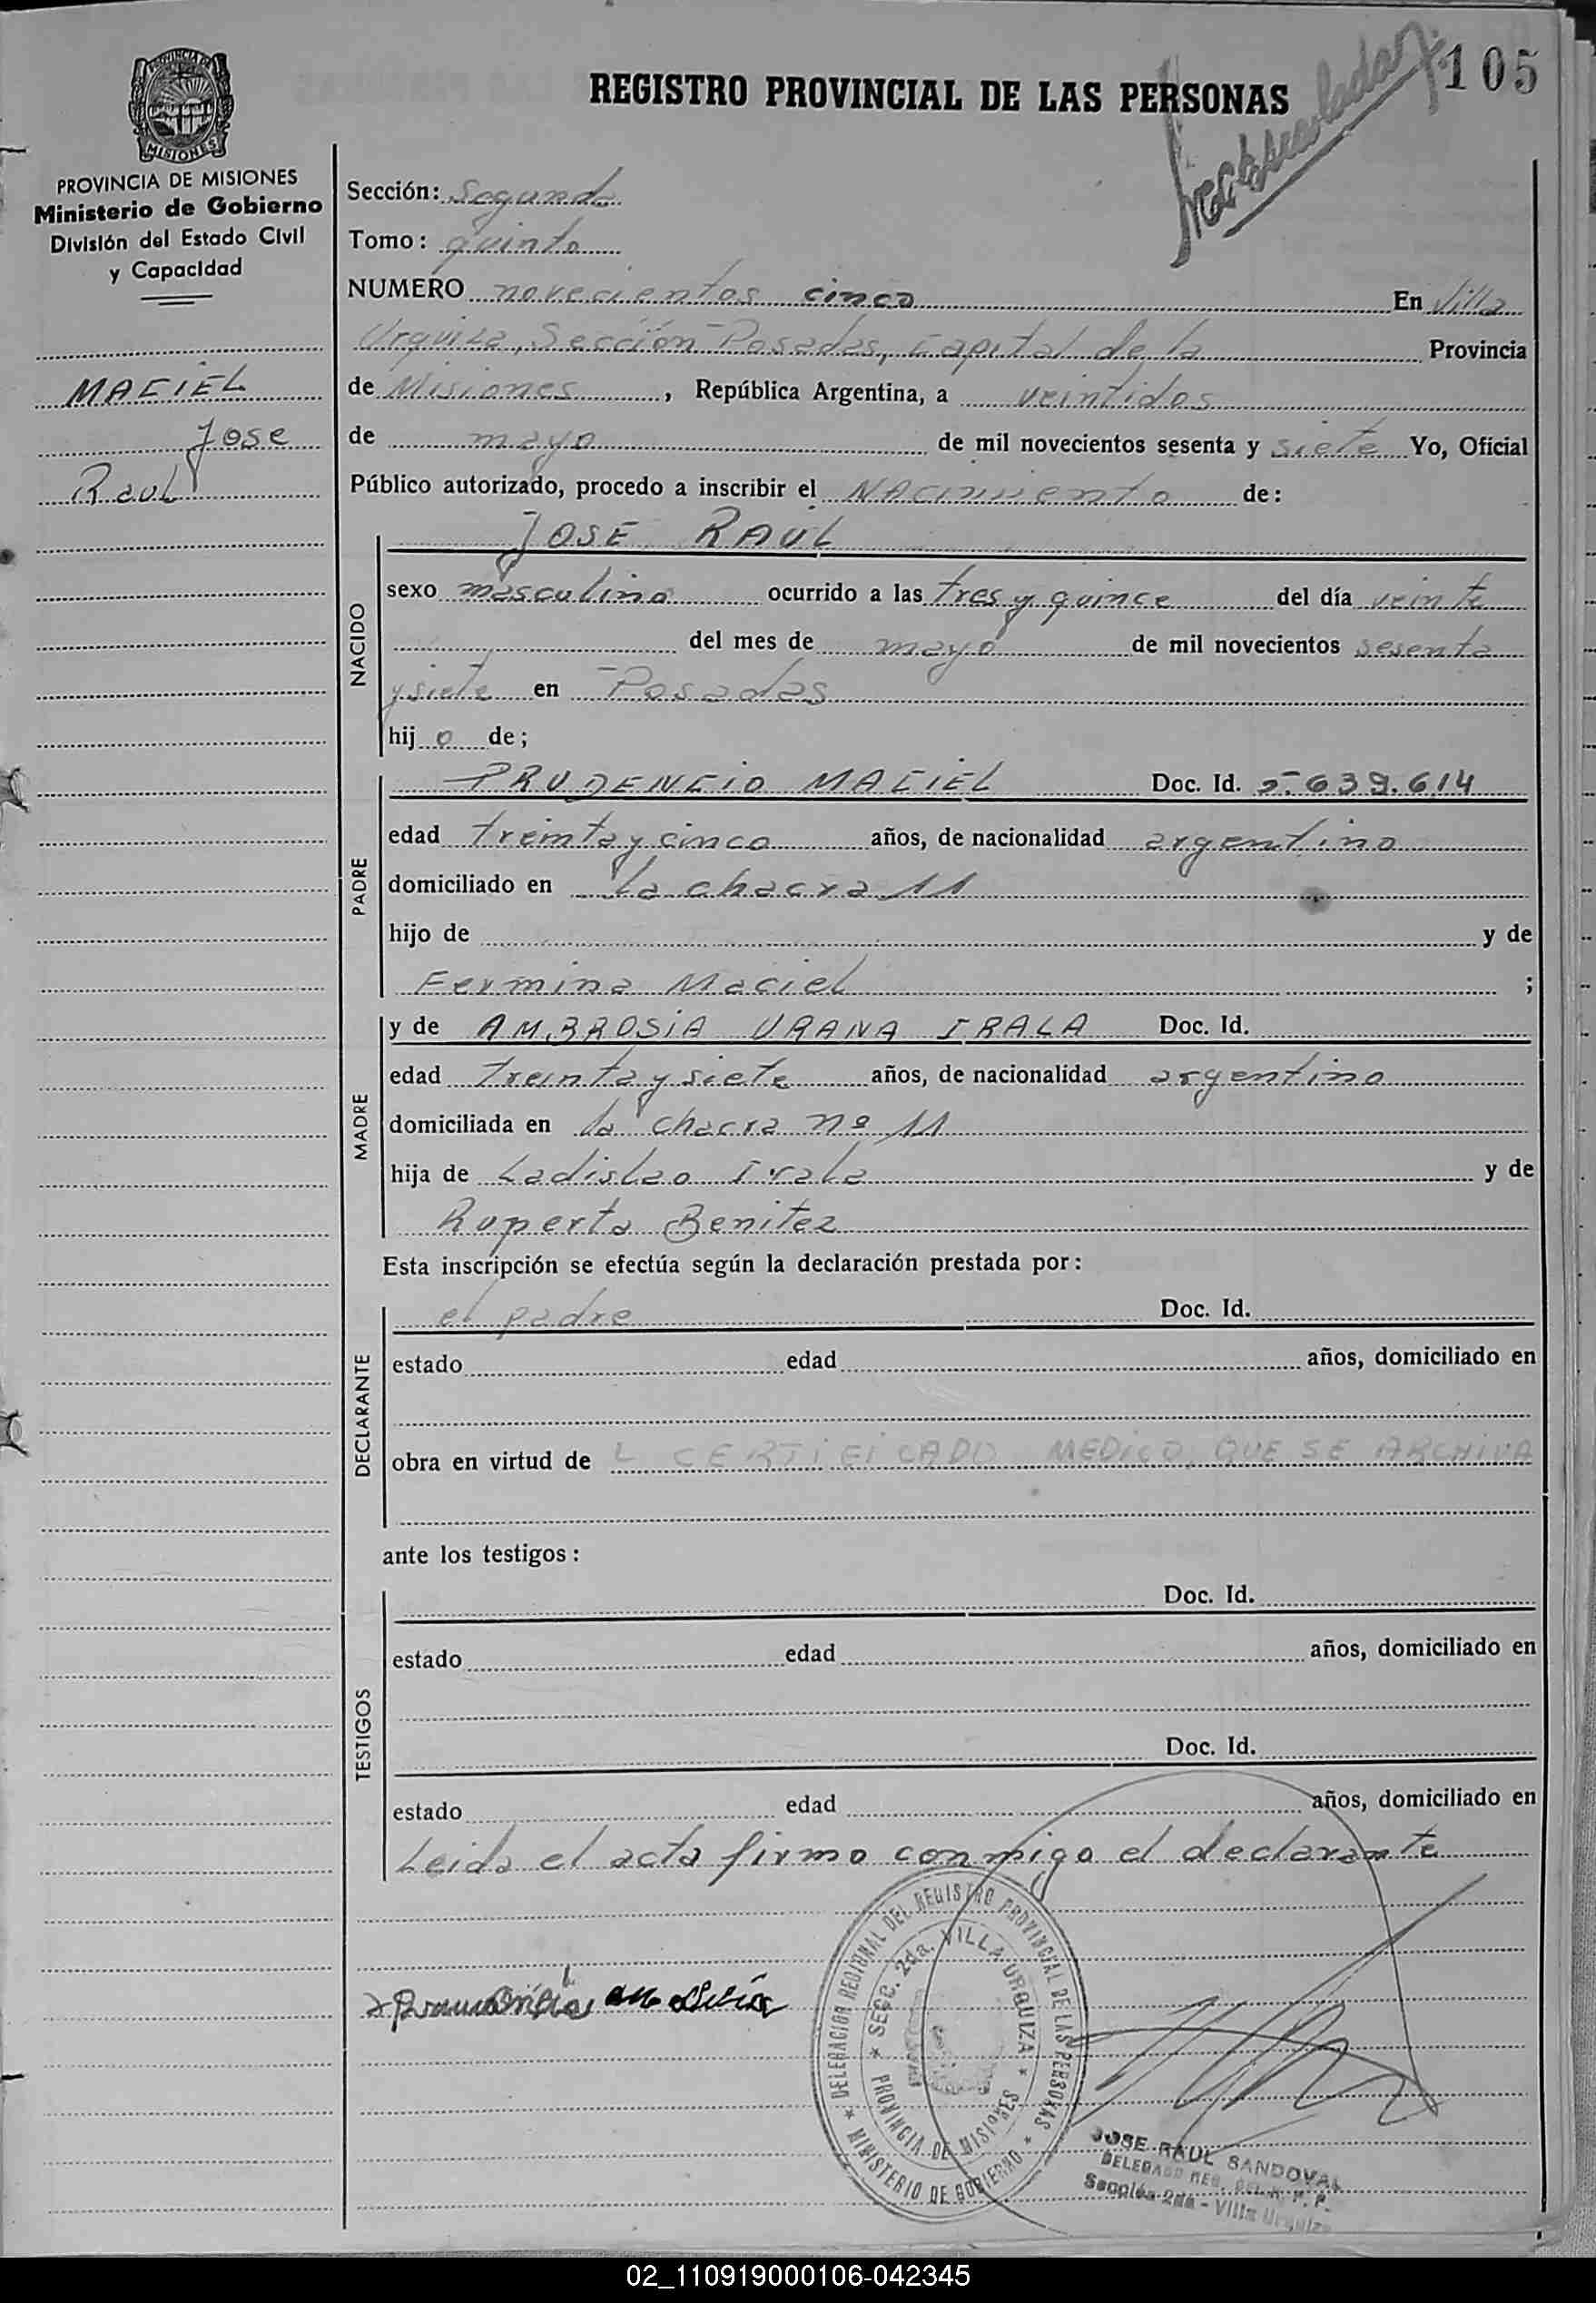 105
REGISTRO PROVINCIAL DE LAS PERSONAS
PROVINCIA DE MISIONES
MISIONES
PROVINCIA DE MISIONES
Ministerio de Gobierno
División del Estado Civil
y Capacidad
MACIEL
Jose
Raul
Sección: Segunda
Tomo: quinto
NUMERO novecientos cinco En Villa
Urquiza, Sección Posadas, Capital de la Provincia
de Misiones, República Argentina, a veintidos
de mayo de mil novecientos sesenta y siete Yo, Oficial
Público autorizado, procedo a inscribir el NACIMIENTO de:
NACIDO
JOSE RAUL
sexo masculino ocurrido a las tres y quince del día veinte
del mes de mayo de mil novecientos sesenta
y siete en Posadas
hijo de;
PADRE
PRUDENCIO MACIEL Doc. Id. 5.639.614
edad treinta y cinco años, de nacionalidad argentino
domiciliado en la chacra 11
hijo de y de
Fermina Maciel ;
MADRE
y de AMBROSIA URANA IRALA Doc. Id.
edad treinta y siete años, de nacionalidad argentino
domiciliada en la chacra nº 11
hija de Ladislao Irala y de
Ruperta Benitez
Esta inscripción se efectúa según la declaración prestada por:
DECLARANTE
el padre Doc. Id.
estado edad años, domiciliado en
obra en virtud de L CERTIFICADO MEDICO, QUE SE ARCHIVA
ante los testigos:
TESTIGOS
Doc. Id.
estado edad años, domiciliado en
Doc. Id.
estado edad años, domiciliado en
Leida el acta firmo conmigo el declarante
DELEGACION REGIONAL DEL REGISTRO PROVINCIAL DE LAS PERSONAS
MINISTERIO DE GOBIERNO
SECC. 2da. VILLA URQUIZA
PROVINCIA DE MISIONES
JOSE RAUL SANDOVAL
DELEGADO REG. DEL R. P. P.
Sección 2da - Villa Urquiza
02_110919000106-042345